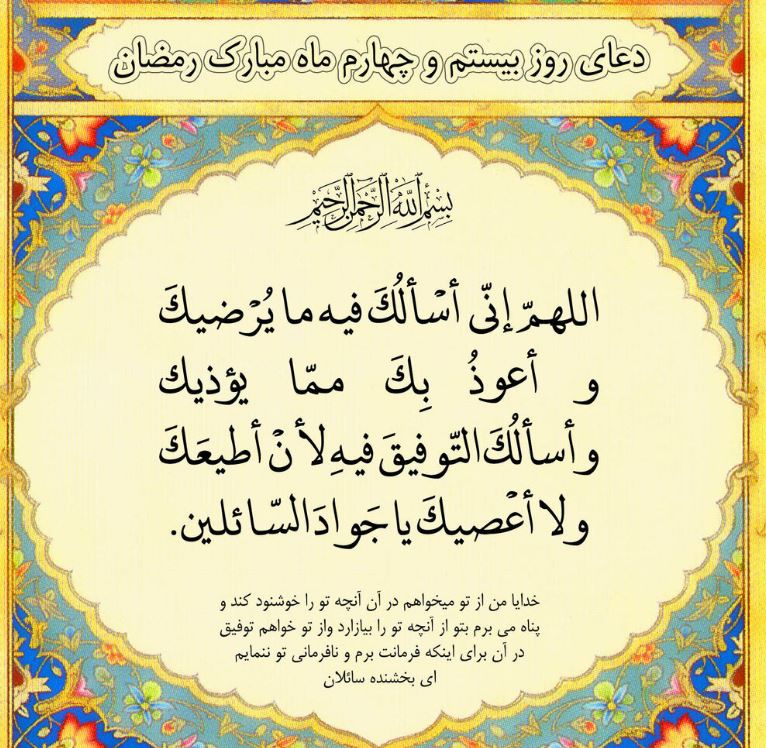 دعای روز بیستم و چهارم ماه مبارک رمضان
بِسْمِ ٱللَّهِ ٱلرَّحْمَٰنِ ٱلرَّحِيمِ
اللهمّ إنّی أسْألُكَ فیه ما یُرْضیكَ
و أعوذُ بِكَ ممّا یؤذیك
وأسألُكَ التّوفیقَ فیهِ لأنْ أطیعَكَ
ولا أعْصیكَ یا جَوادَ السّائلین.
خدایا من از تو میخواهم در آن آنچه تو را خوشنود کند و
پناه می برم بتو از آنچه تو را بیازارد واز تو خواهم توفیق
در آن برای اینکه فرمانت برم و نافرمانی تو ننمایم
ای بخشنده سائلان